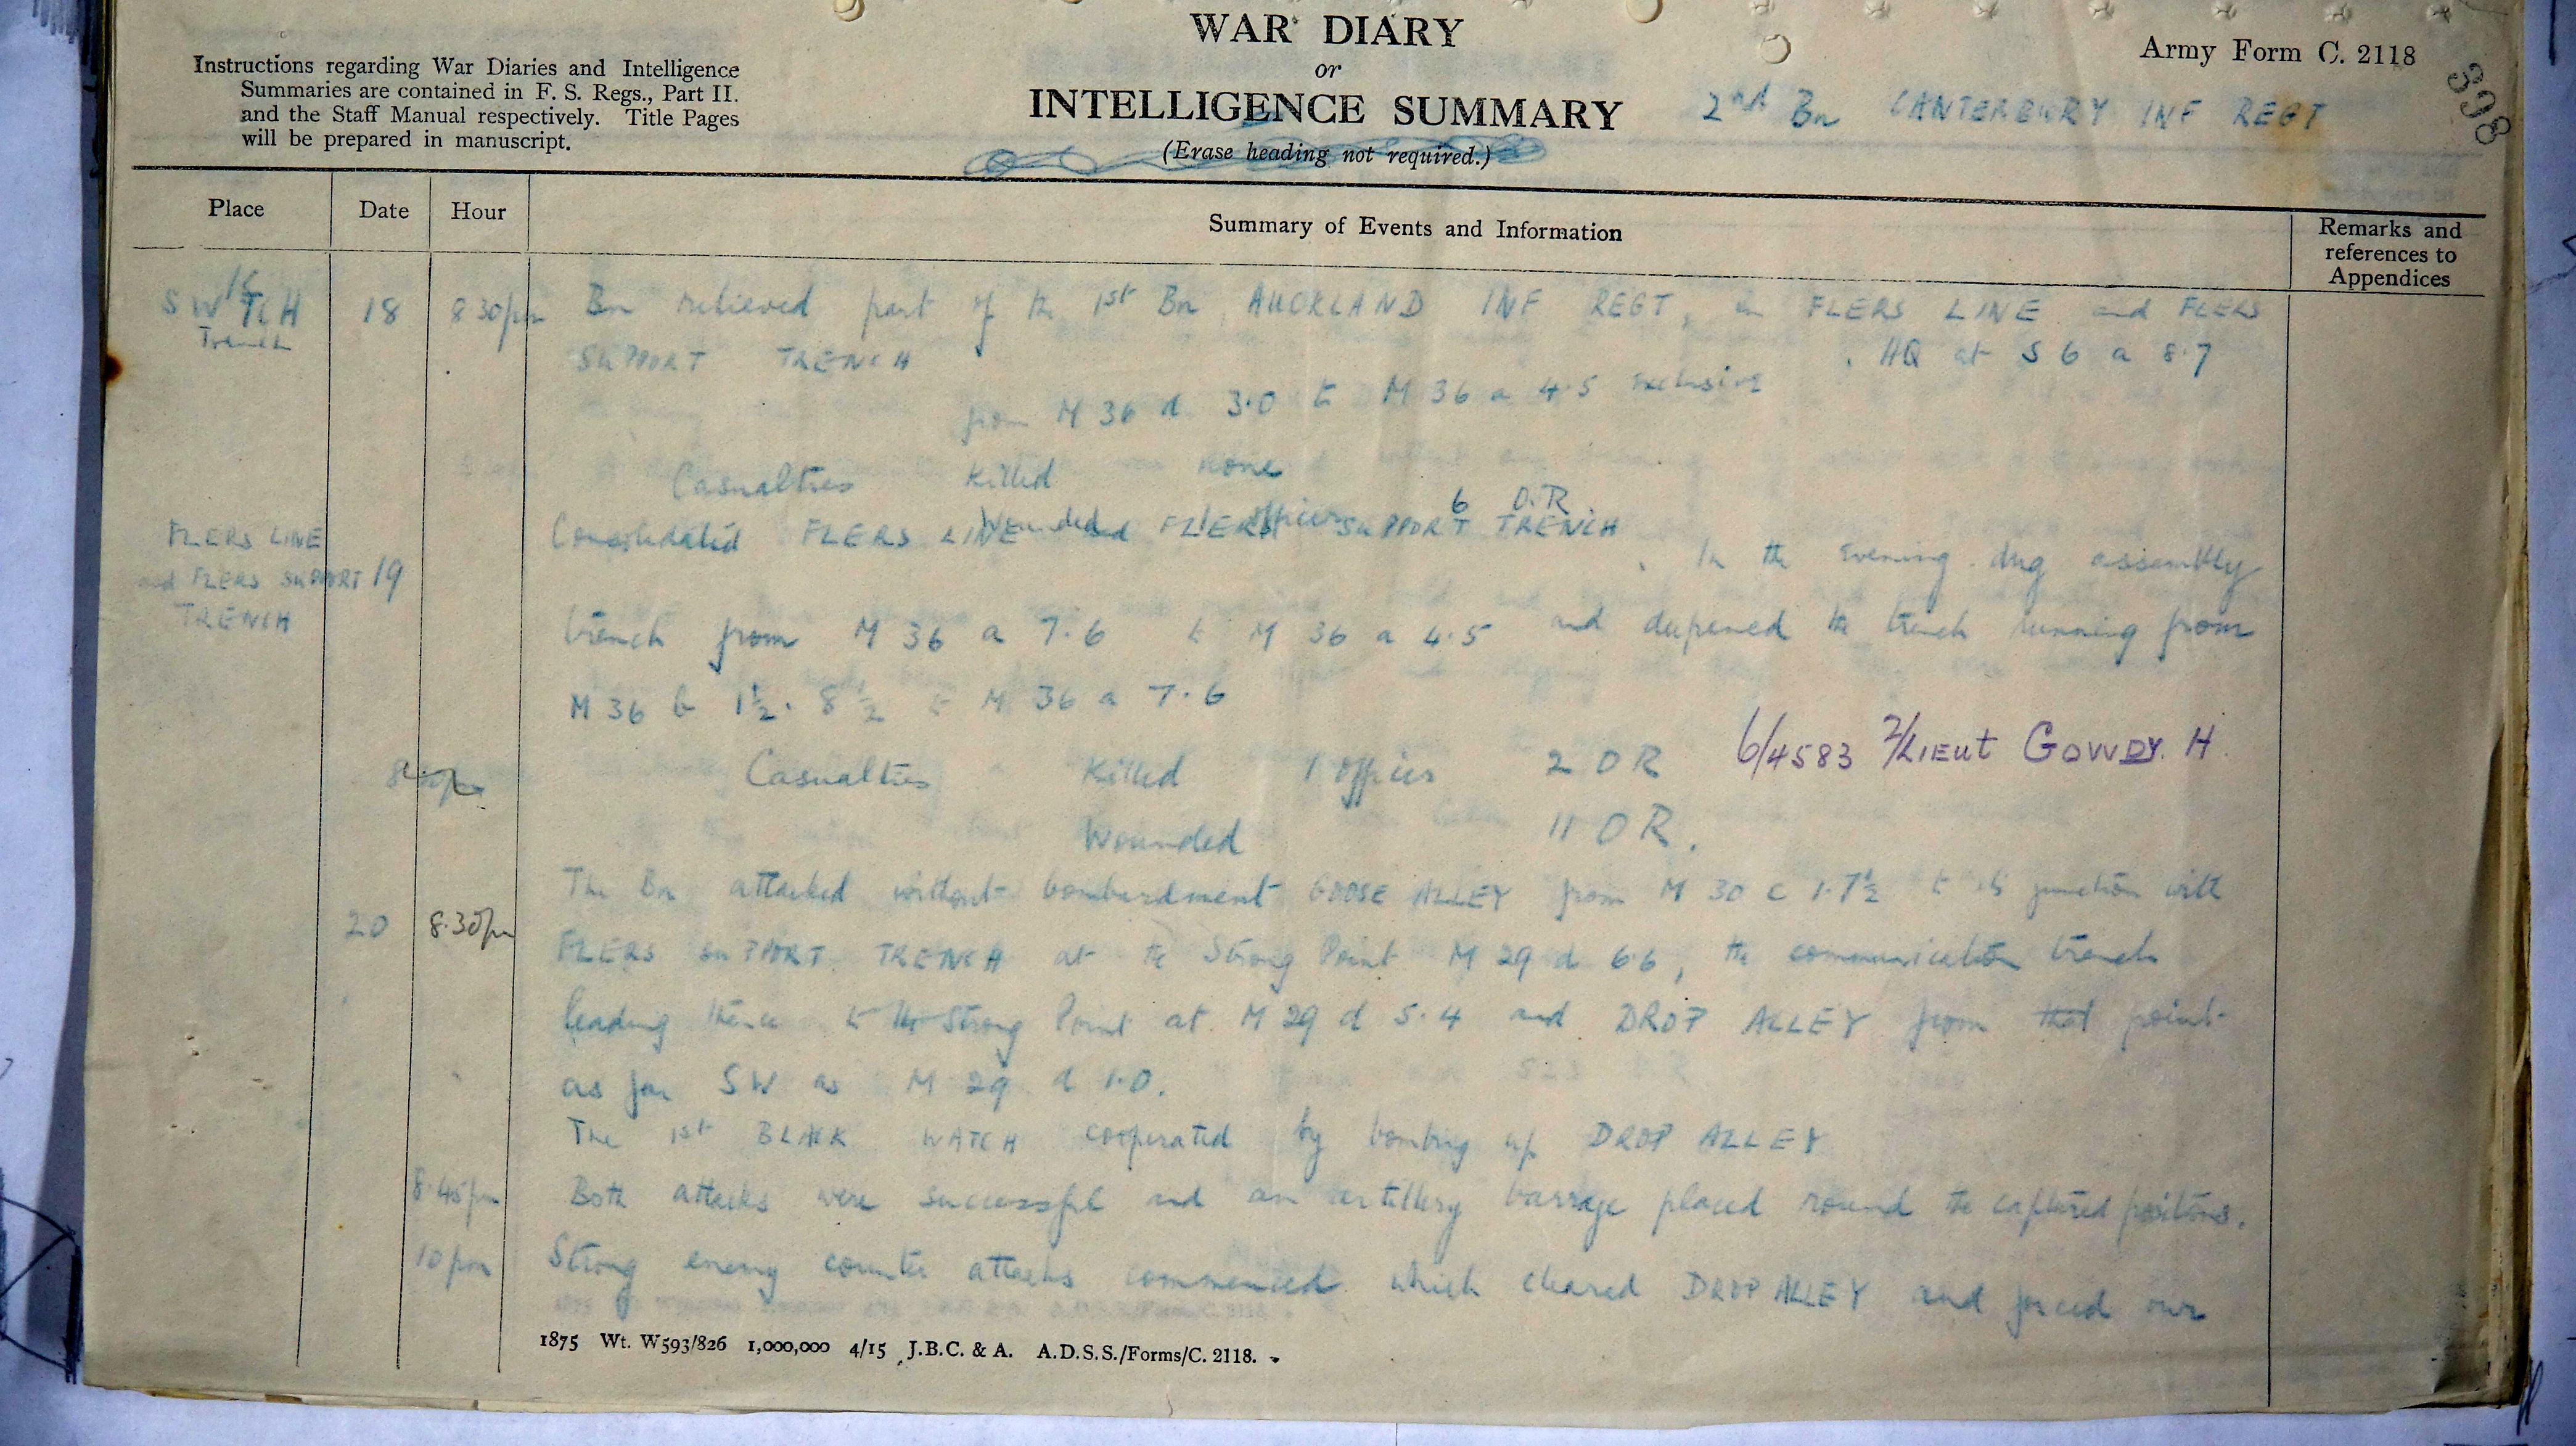 WAR DIARY
or
INTELLIGENCE SUMMARY
(Erase heading not required.)
Instructions regarding War Diaries and Intelligence
Summaries are contained in F. S. Regs., Part II.
and the Staff Manual respectively. Title Pages
will be prepared in manuscript.
Army Form C. 2118
398
2nd Bn CANTERBURY INF REGT
Place Date Hour Summary of Events and Information Remarks and references to Appendices
SWITCH Trench 18 8 30pm Bn relieved part of the 1st Bn AUCKLAND INF REGT, in FLERS LINE and FLERS
SUPPORT TRENCH . HQ at S 6 a 8.7
from M 36 d 3.0 to M 36 a 4.5 exclusive
Casualties Killed none
Wounded 1 officer 6 O.R.
FLERS LINE and FLERS SUPPORT TRENCH 19 Consolidated FLERS LINE and FLERS SUPPORT TRENCH . In the evening dug assembly
trench from M 36 a 7.6 to M 36 a 4.5 and deepened the trench running from
M 36 b 1½. 8½ to M 36 a 7.6
Casualties Killed 1 officer 2 OR 6/4583 2/Lieut GOWDY. H.
Wounded 11 OR.
20 8.30pm The Bn attacked without bombardment GOOSE ALLEY from M 30 c 1.7½ to its junction with
FLERS SUPPORT TRENCH at the Strong Point M 29 d 6.6, the communication trench
leading thence to the Strong Point at M 29 d 5.4 and DROP ALLEY from that point
as far SW as M 29 d 1.0.
The 1st BLACK WATCH cooperated by bombing up DROP ALLEY
8.45pm Both attacks were successful and an artillery barrage placed round the captured positions.
10pm Strong enemy counter attacks commenced which cleared DROP ALLEY and forced our
1875 Wt. W593/826 1,000,000 4/15 J.B.C. & A. A.D.S.S./Forms/C. 2118.